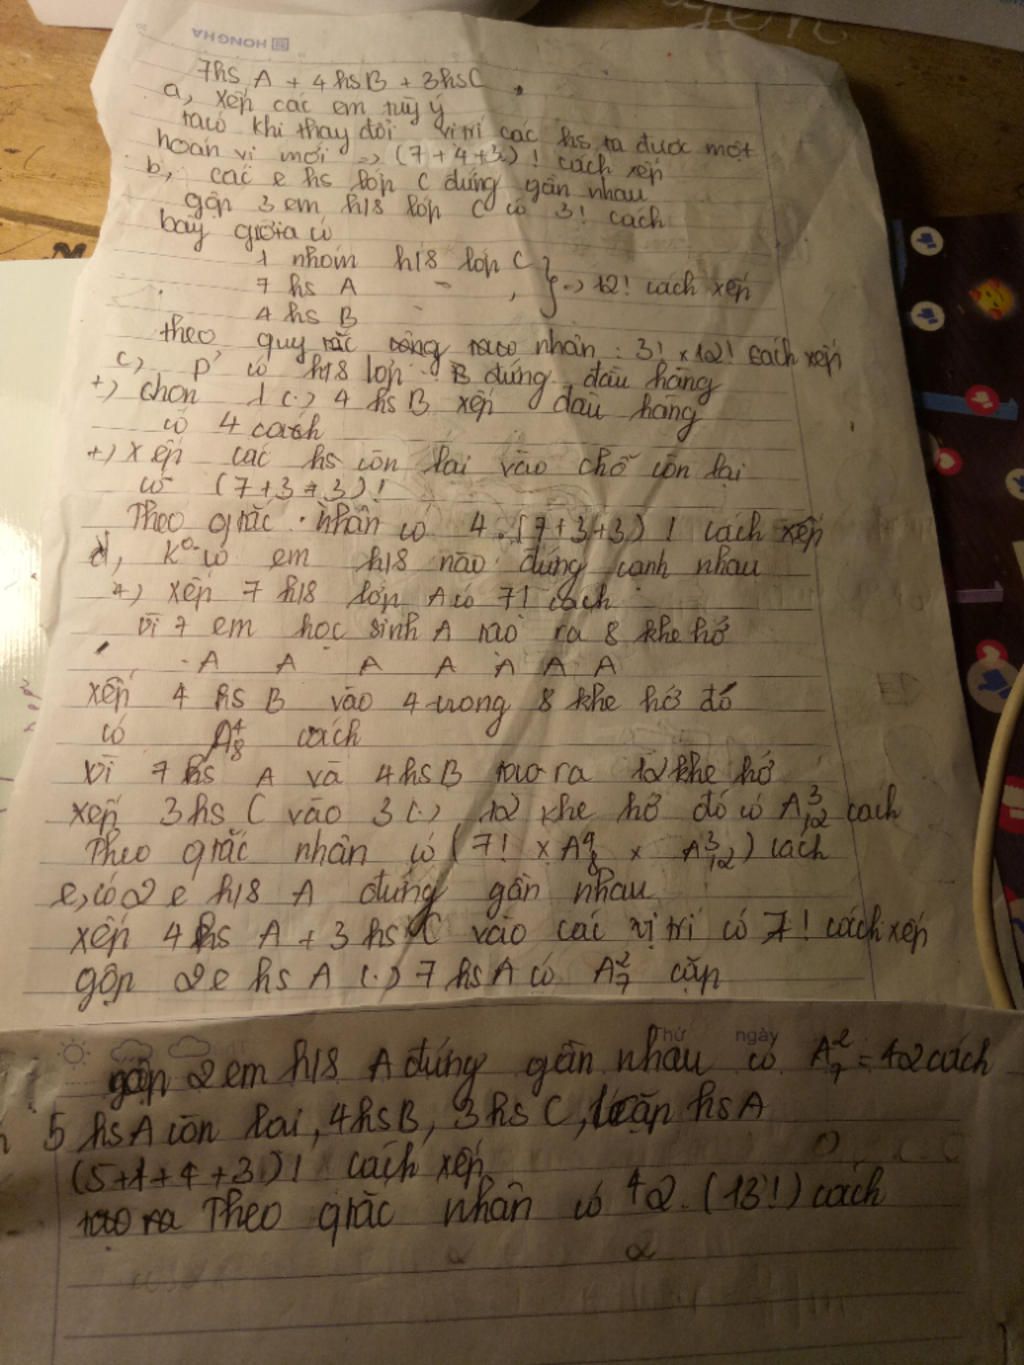 HONG HA
7hs A + 4hsB + 3hsC
a, xếp các em tùy ý
taco khi thay đổi vị trí các hs ta được một
hoán vị mới => (7+4+3)! cách xếp
b, các e hs lớp C đứng gần nhau
gộp 3 em h/s lớp C có 3! cách
bây giờ ta có
1 nhóm h/s lớp C
7 hs A } => 12! cách xếp
4 hs B
theo quy tắc nhân : 3! x 12! cách xếp
c) P' có h/s lớp B đứng đầu hàng
+) chọn 1 (.) 4 hs B xếp đầu hàng
có 4 cách
+) xếp các hs còn lại vào chỗ còn lại
có (7+3+3)!
Theo qtắc nhân có 4.(7+3+3)! cách xếp
d, k° có em h/s nào đứng cạnh nhau
+) xếp 7 h/s lớp A có 7! cách
vì 7 em học sinh A tạo ra 8 khe hở
A A A A A A A
xếp 4 hs B vào 4 trong 8 khe hở đó
có A⁴₈ cách
vì 7 hs A và 4hsB tạo ra 12 khe hở
xếp 3hs C vào 3 (.) 12 khe hở đó có A³₁₂ cách
Theo qtắc nhân có (7! x A⁴₈ x A³₁₂) cách
e, có 2 e h/s A đứng gần nhau
xếp 4hs A + 3 hs C vào các vị trí có 7! cách xếp
gộp 2e hs A (.) 7 hs A có A²₇ cặp
Thứ ngày
gộp 2 em h/s A đứng gần nhau có A²₇ = 42 cách
5 hsA còn lại, 4hsB, 3hsC, cặp hsA
(5+1+4+3)! cách xếp
Theo qtắc nhân có 42.(13!) cách